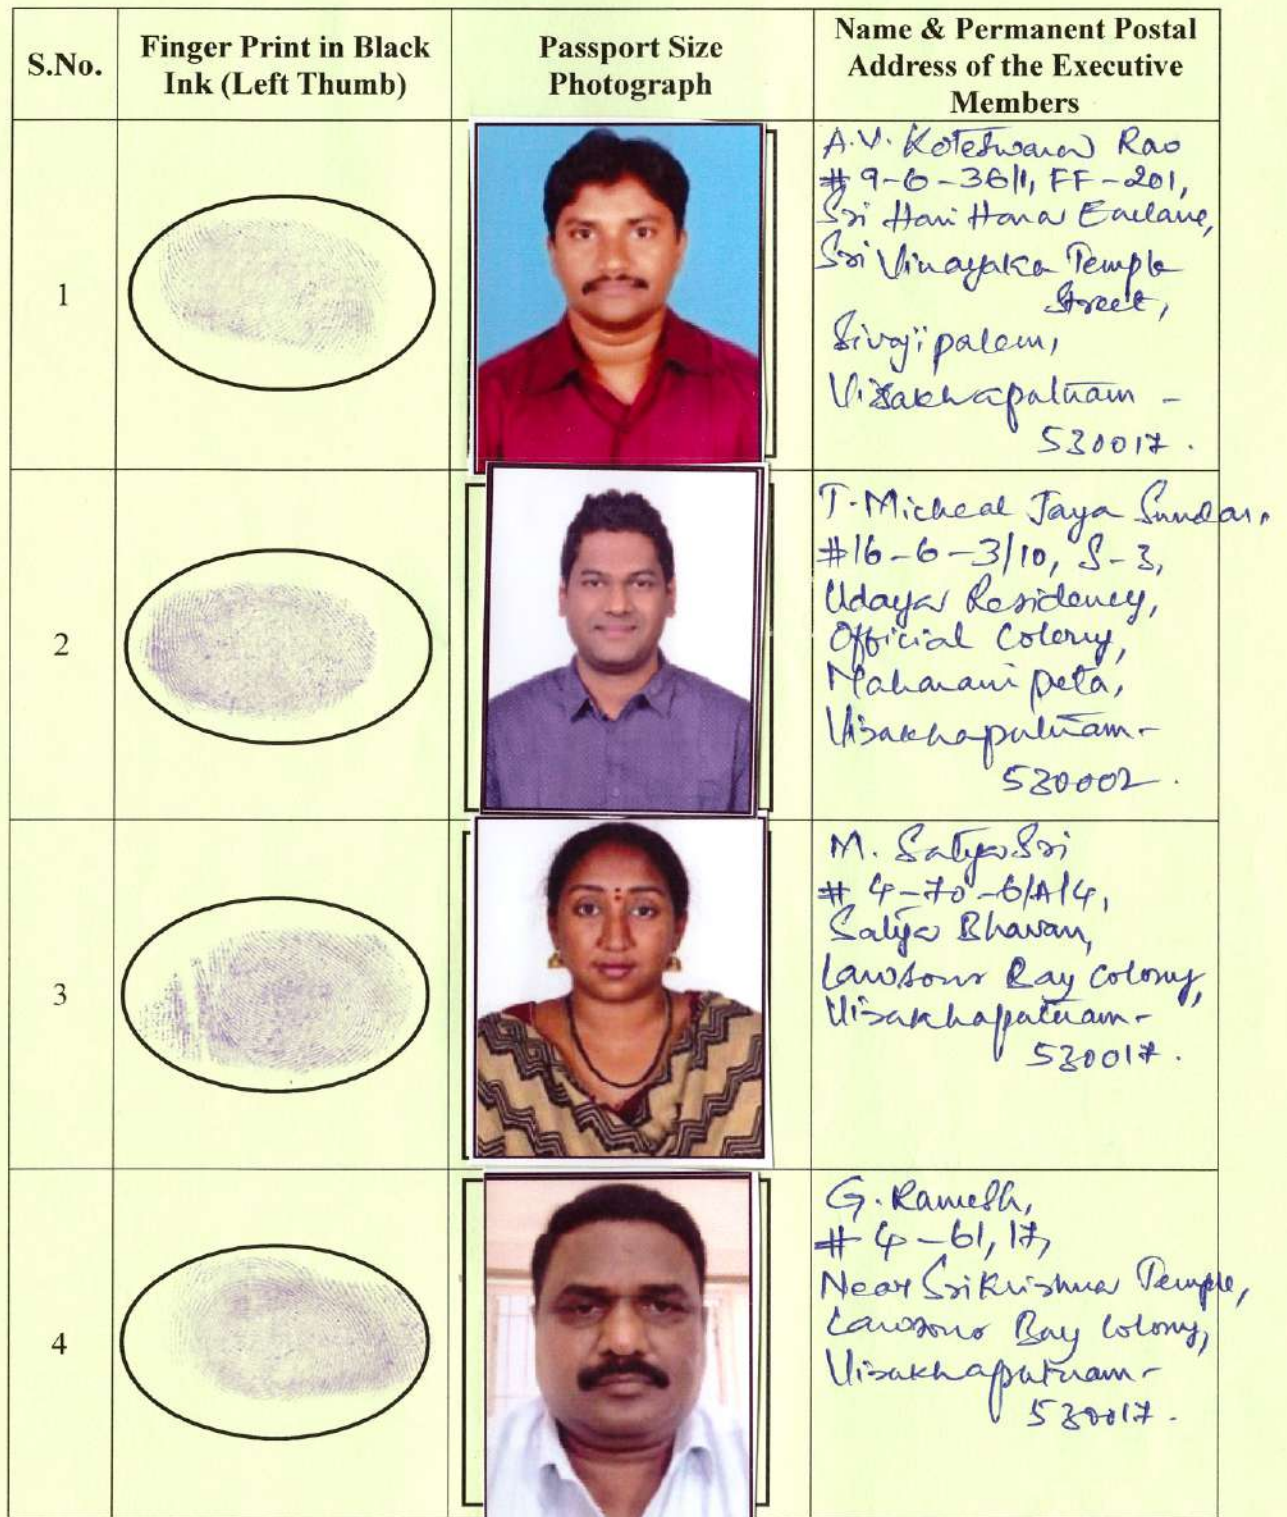 S.No.
Finger Print in Black
Ink (Left Thumb)
Passport Size
Photograph
Name & Permanent Postal
Address of the Executive
Members
1
A.V. Koteshwara Rao
# 9-6-36/1, FF-201,
Sri Hari Hara Enclave,
Sri Vinayaka Temple
Street,
Sivajipalem,
Visakhapatnam -
530017.
2
T. Micheal Jaya Sundar,
#16-6-3/10, S-3,
Udaya Residency,
Official Colony,
Maharanipeta,
Visakhapatnam-
530002.
3
M. Satya Sri
# 4-70-6/A/4,
Satya Bhavan,
Lawsons Bay Colony,
Visakhapatnam-
530017.
4
G. Ramesh,
# 4-61, 17,
Near Sri Krishna Temple,
Lawsons Bay Colony,
Visakhapatnam-
530017.